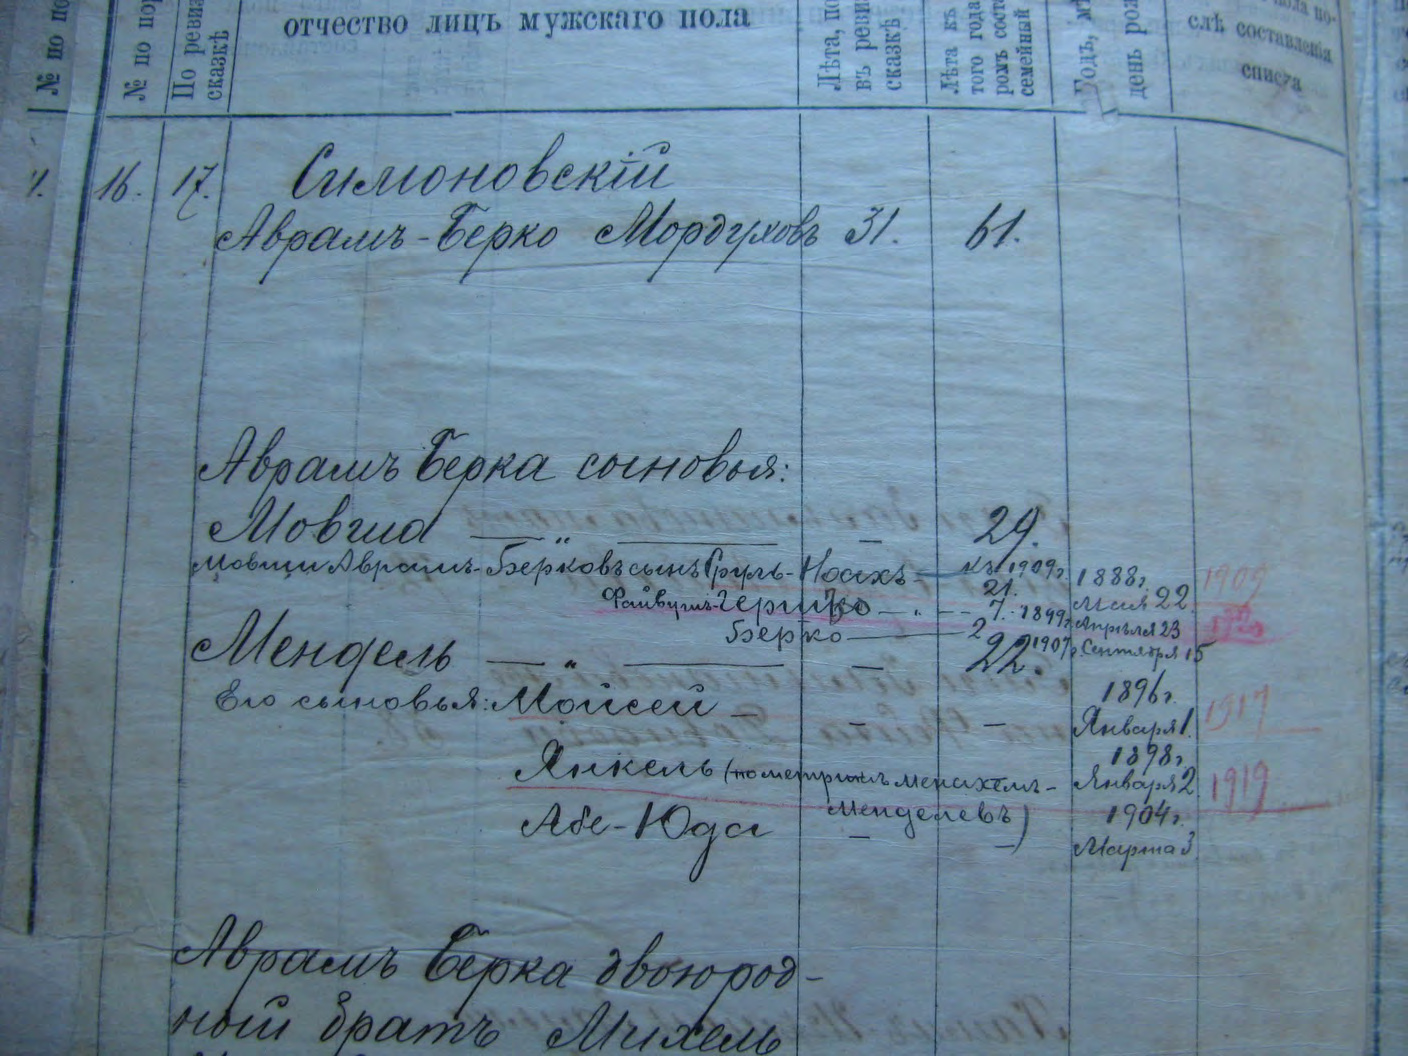 № по по
№ по пор
По ревиз
сказкѣ
отчество лицъ мужскаго пола
Лѣта, по
въ ревиз
сказкѣ
Лѣта къ
того года
ромъ сост
семейный
Годъ, мѣ
день рож
пола по-
слѣ составленія
списка
16. 17. Симоновскій
Аврамъ-Берко Мордуховъ 31. 61.
Аврамъ Берка сыновья:
Мовша — " — - 29.
Мовши Аврамъ-Берковъ сынъ Сруль-Ноахъ - къ 1909г. 21. 1888г. Мая 22. 1909
Файвушъ-Гершко - " - - 7. - 1899г. Апрѣля 23
Берко — 2 1907г. Сентября 15
Мендель — " — - 22.
Его сыновья: Мойсей - - - 1896г. Января 1. 1917
Янкель (по метрикамъ Менахемъ- 1898г. Января 2. 1919
Менделевъ)
Абе-Юда - - 1904г. Марта 3
Аврамъ Берка двоюрод-
ный братъ Михель